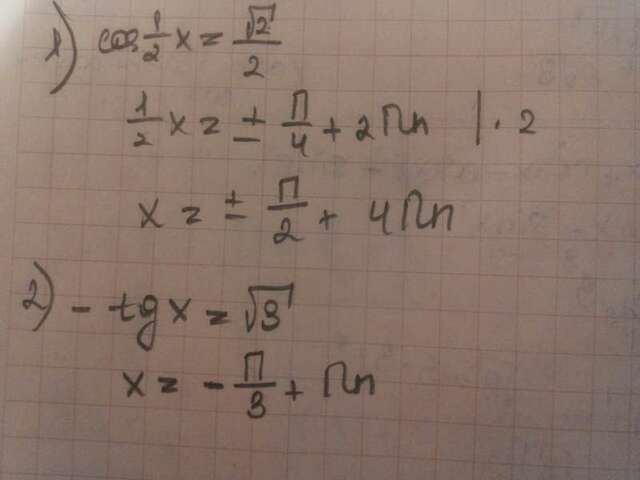 1) cos 1/2 x = √2/2
1/2 x = ± П/4 + 2Пn | · 2
x = ± П/2 + 4Пn
2) - tg x = √3
x = - П/3 + Пn